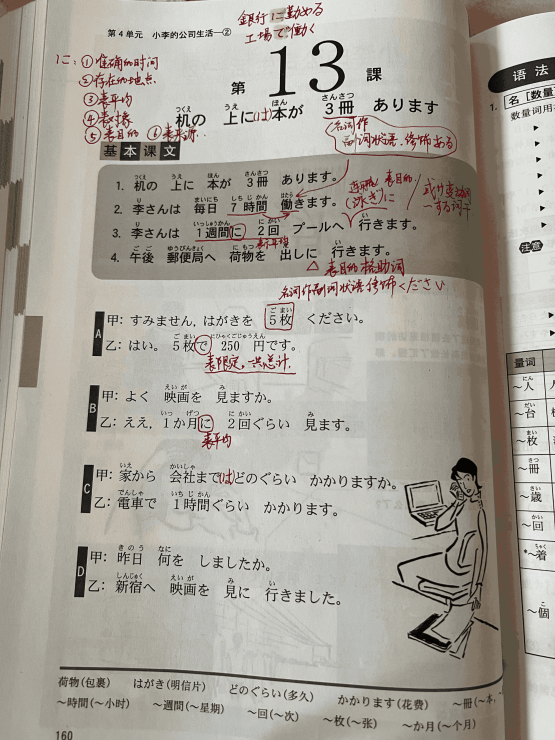 第4单元 小李的公司生活—②
銀行に勤める
工場で働く
に：①准确的时间
②存在的地点
③表平均
④表对象
⑤表目的
第 13 課
机の 上に(は)本が 3冊 あります
基本课文
1. 机の 上に 本が 3冊 あります。
2. 李さんは 毎日 7時間 働きます。
3. 李さんは 1週間に 2回 プールへ 行きます。
4. 午後 郵便局へ 荷物を 出しに 行きます。
表平均
△ 表目的格助词
A
甲: すみません, はがきを 5枚 ください。
乙: はい。 5枚で 250 円です。
表限定，共总计
B
甲: よく 映画を 見ますか。
乙: ええ, 1か月に 2回ぐらい 見ます。
表平均
C
甲: 家から 会社まで(は)どのぐらい かかりますか。
乙: 電車で 1時間ぐらい かかります。
D
甲: 昨日 何を しましたか。
乙: 新宿へ 映画を 見に 行きました。
荷物(包裹) はがき(明信片) どのぐらい(多久) かかります(花费) ～冊(～本
～時間(～小时) ～週間(～星期) ～回(～次) ～枚(～张) ～か月(～个月)
160
语法
1. 名[数量
数量词用
注意
量词
～人
～台
～枚
～冊
～歳
～回
*～着
～個